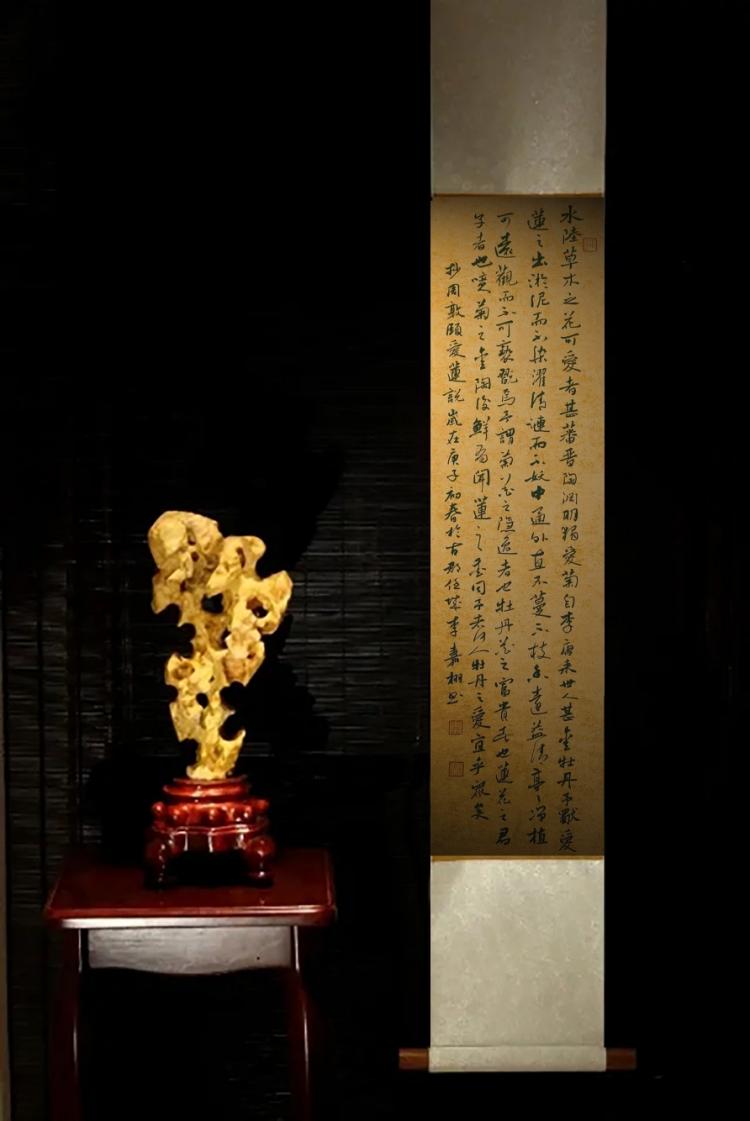 水陸草木之花可愛者甚蕃晋陶渊明獨愛菊自李唐来世人甚愛牡丹予獨愛
蓮之出淤泥而不染濯清漣而不妖中通外直不蔓不枝香遠益清亭々净植
可遠觀而不可褻翫焉予謂菊花之隐逸者也牡丹花之富貴者也蓮花之君
子者也噫菊之愛陶後鮮有聞蓮之愛同予者何人牡丹之愛宜乎眾矣
抄周敦頤愛蓮說嵗在庚子初春於古郡任城李嘉栩